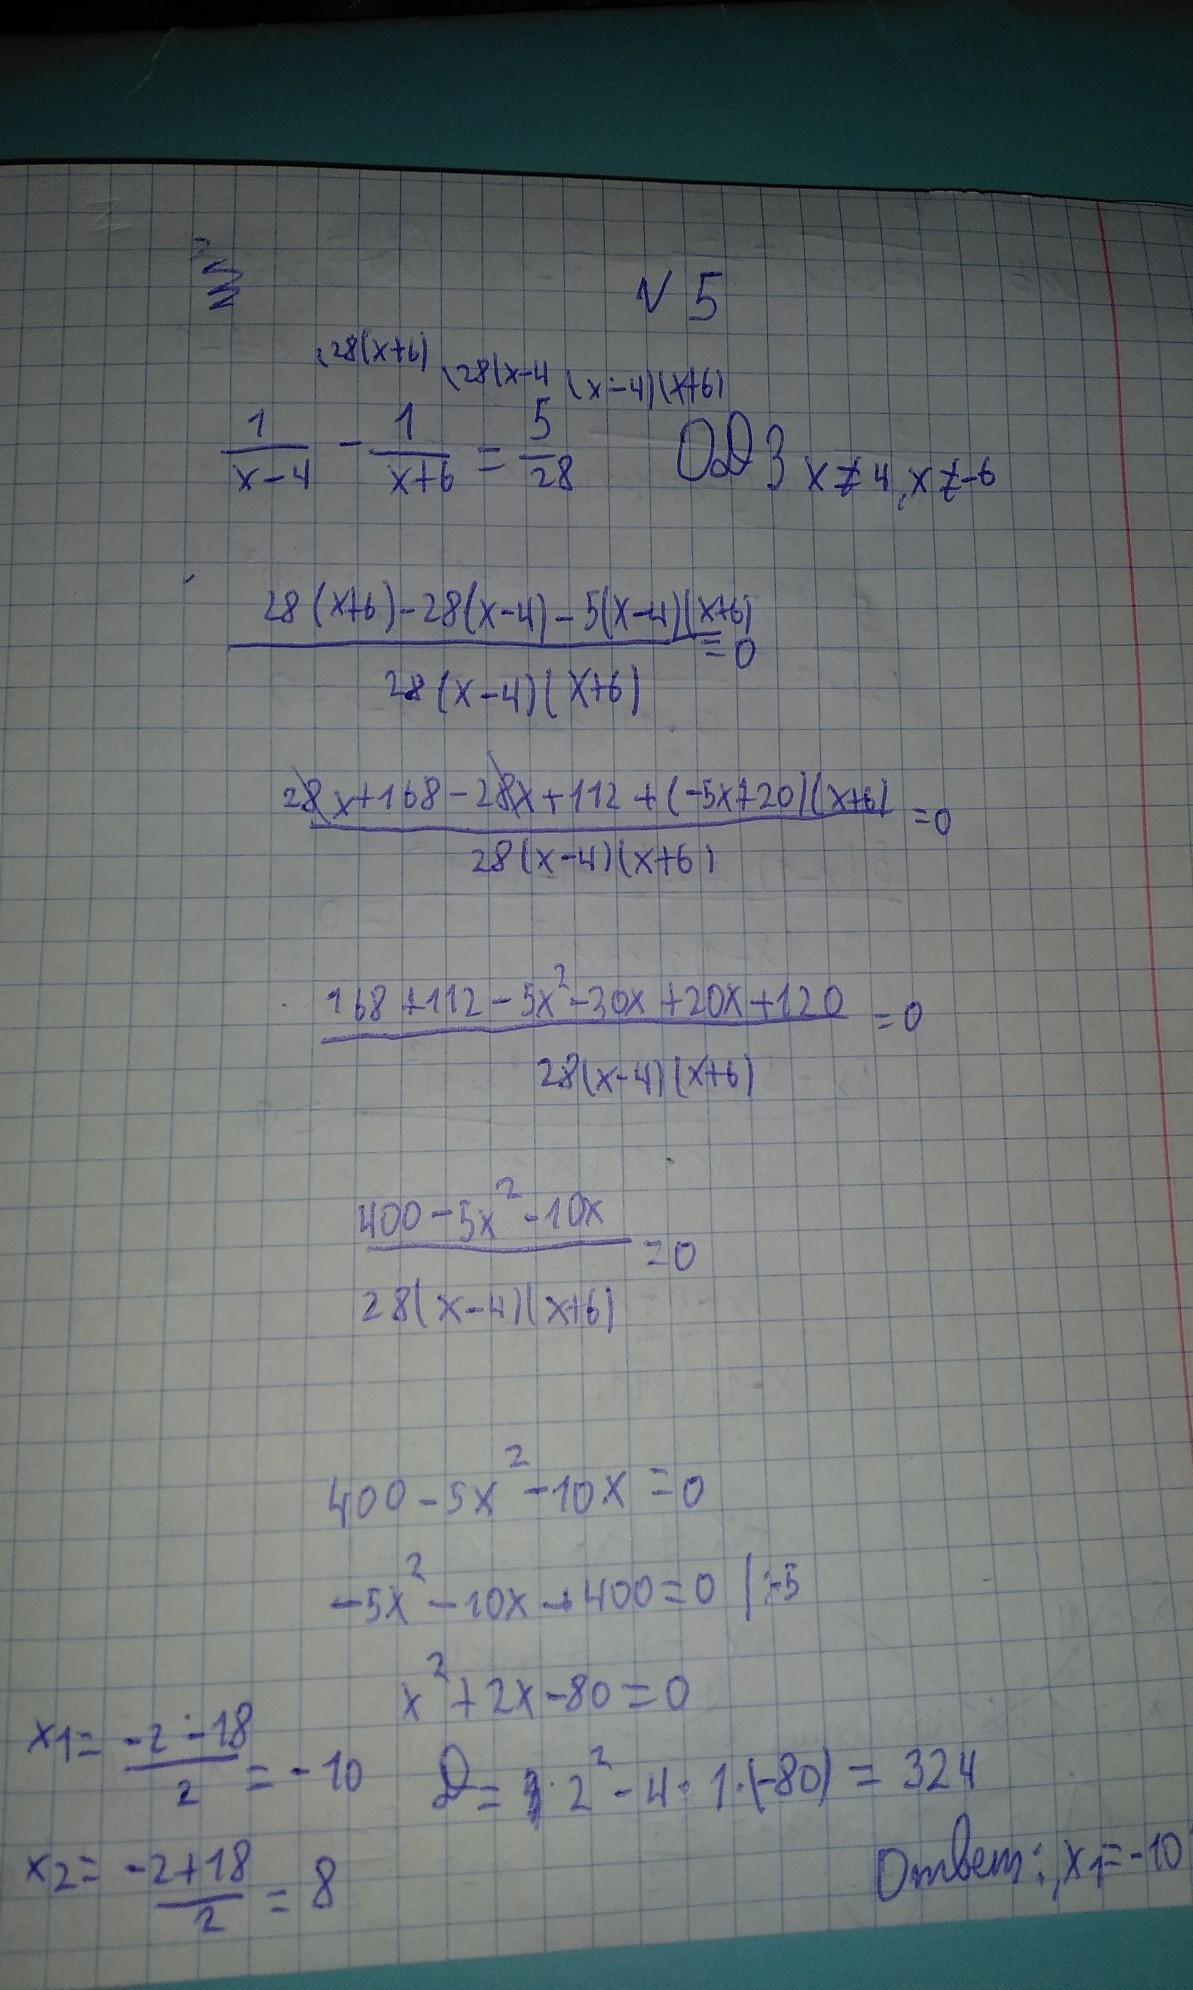 √ 5
\28(x+6) \28(x-4 (x-4)(x+6)
1/(x-4) - 1/(x+6) = 5/28 ОДЗ x≠4, x≠-6
(28(x+6)-28(x-4)-5(x-4)(x+6))/(28(x-4)(x+6)) =0
(28x+168-28x+112+(-5x+20)(x+6))/(28(x-4)(x+6)) =0
(168+112-5x²-30x+20x+120)/(28(x-4)(x+6)) =0
(400-5x²-10x)/(28(x-4)(x+6)) =0
400-5x²-10x=0
-5x²-10x+400=0 |:-5
x²+2x-80=0
x1= (-2-18)/2 = -10 D= 2²-4·1·(-80) = 324
x2= (-2+18)/2 = 8 Ответ: x1=-10